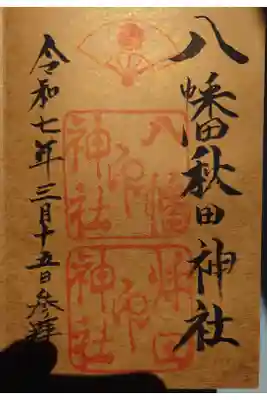 八幡秋田神社
令和七年三月十五日参拝
八幡
神社印
秋田
神社印